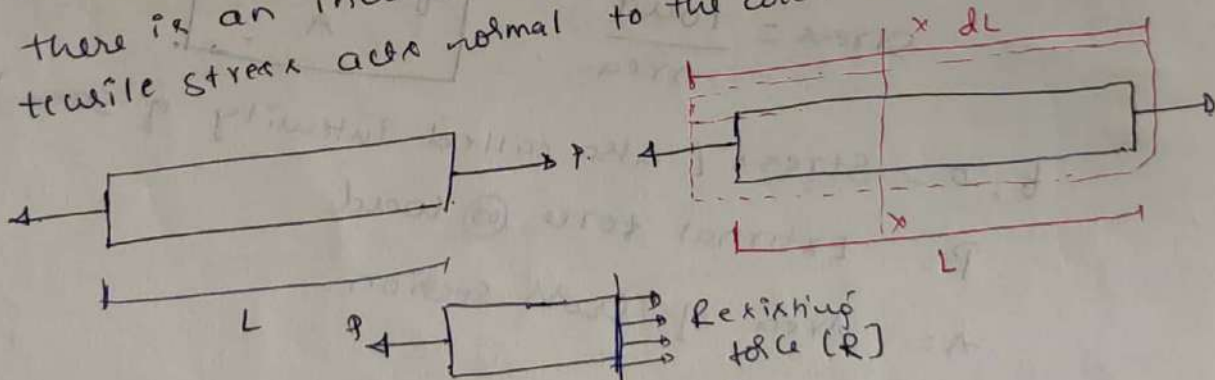 there is an
tensile stress acts normal to the
x dL
P.
x
L
L
P
Resisting
force (R)